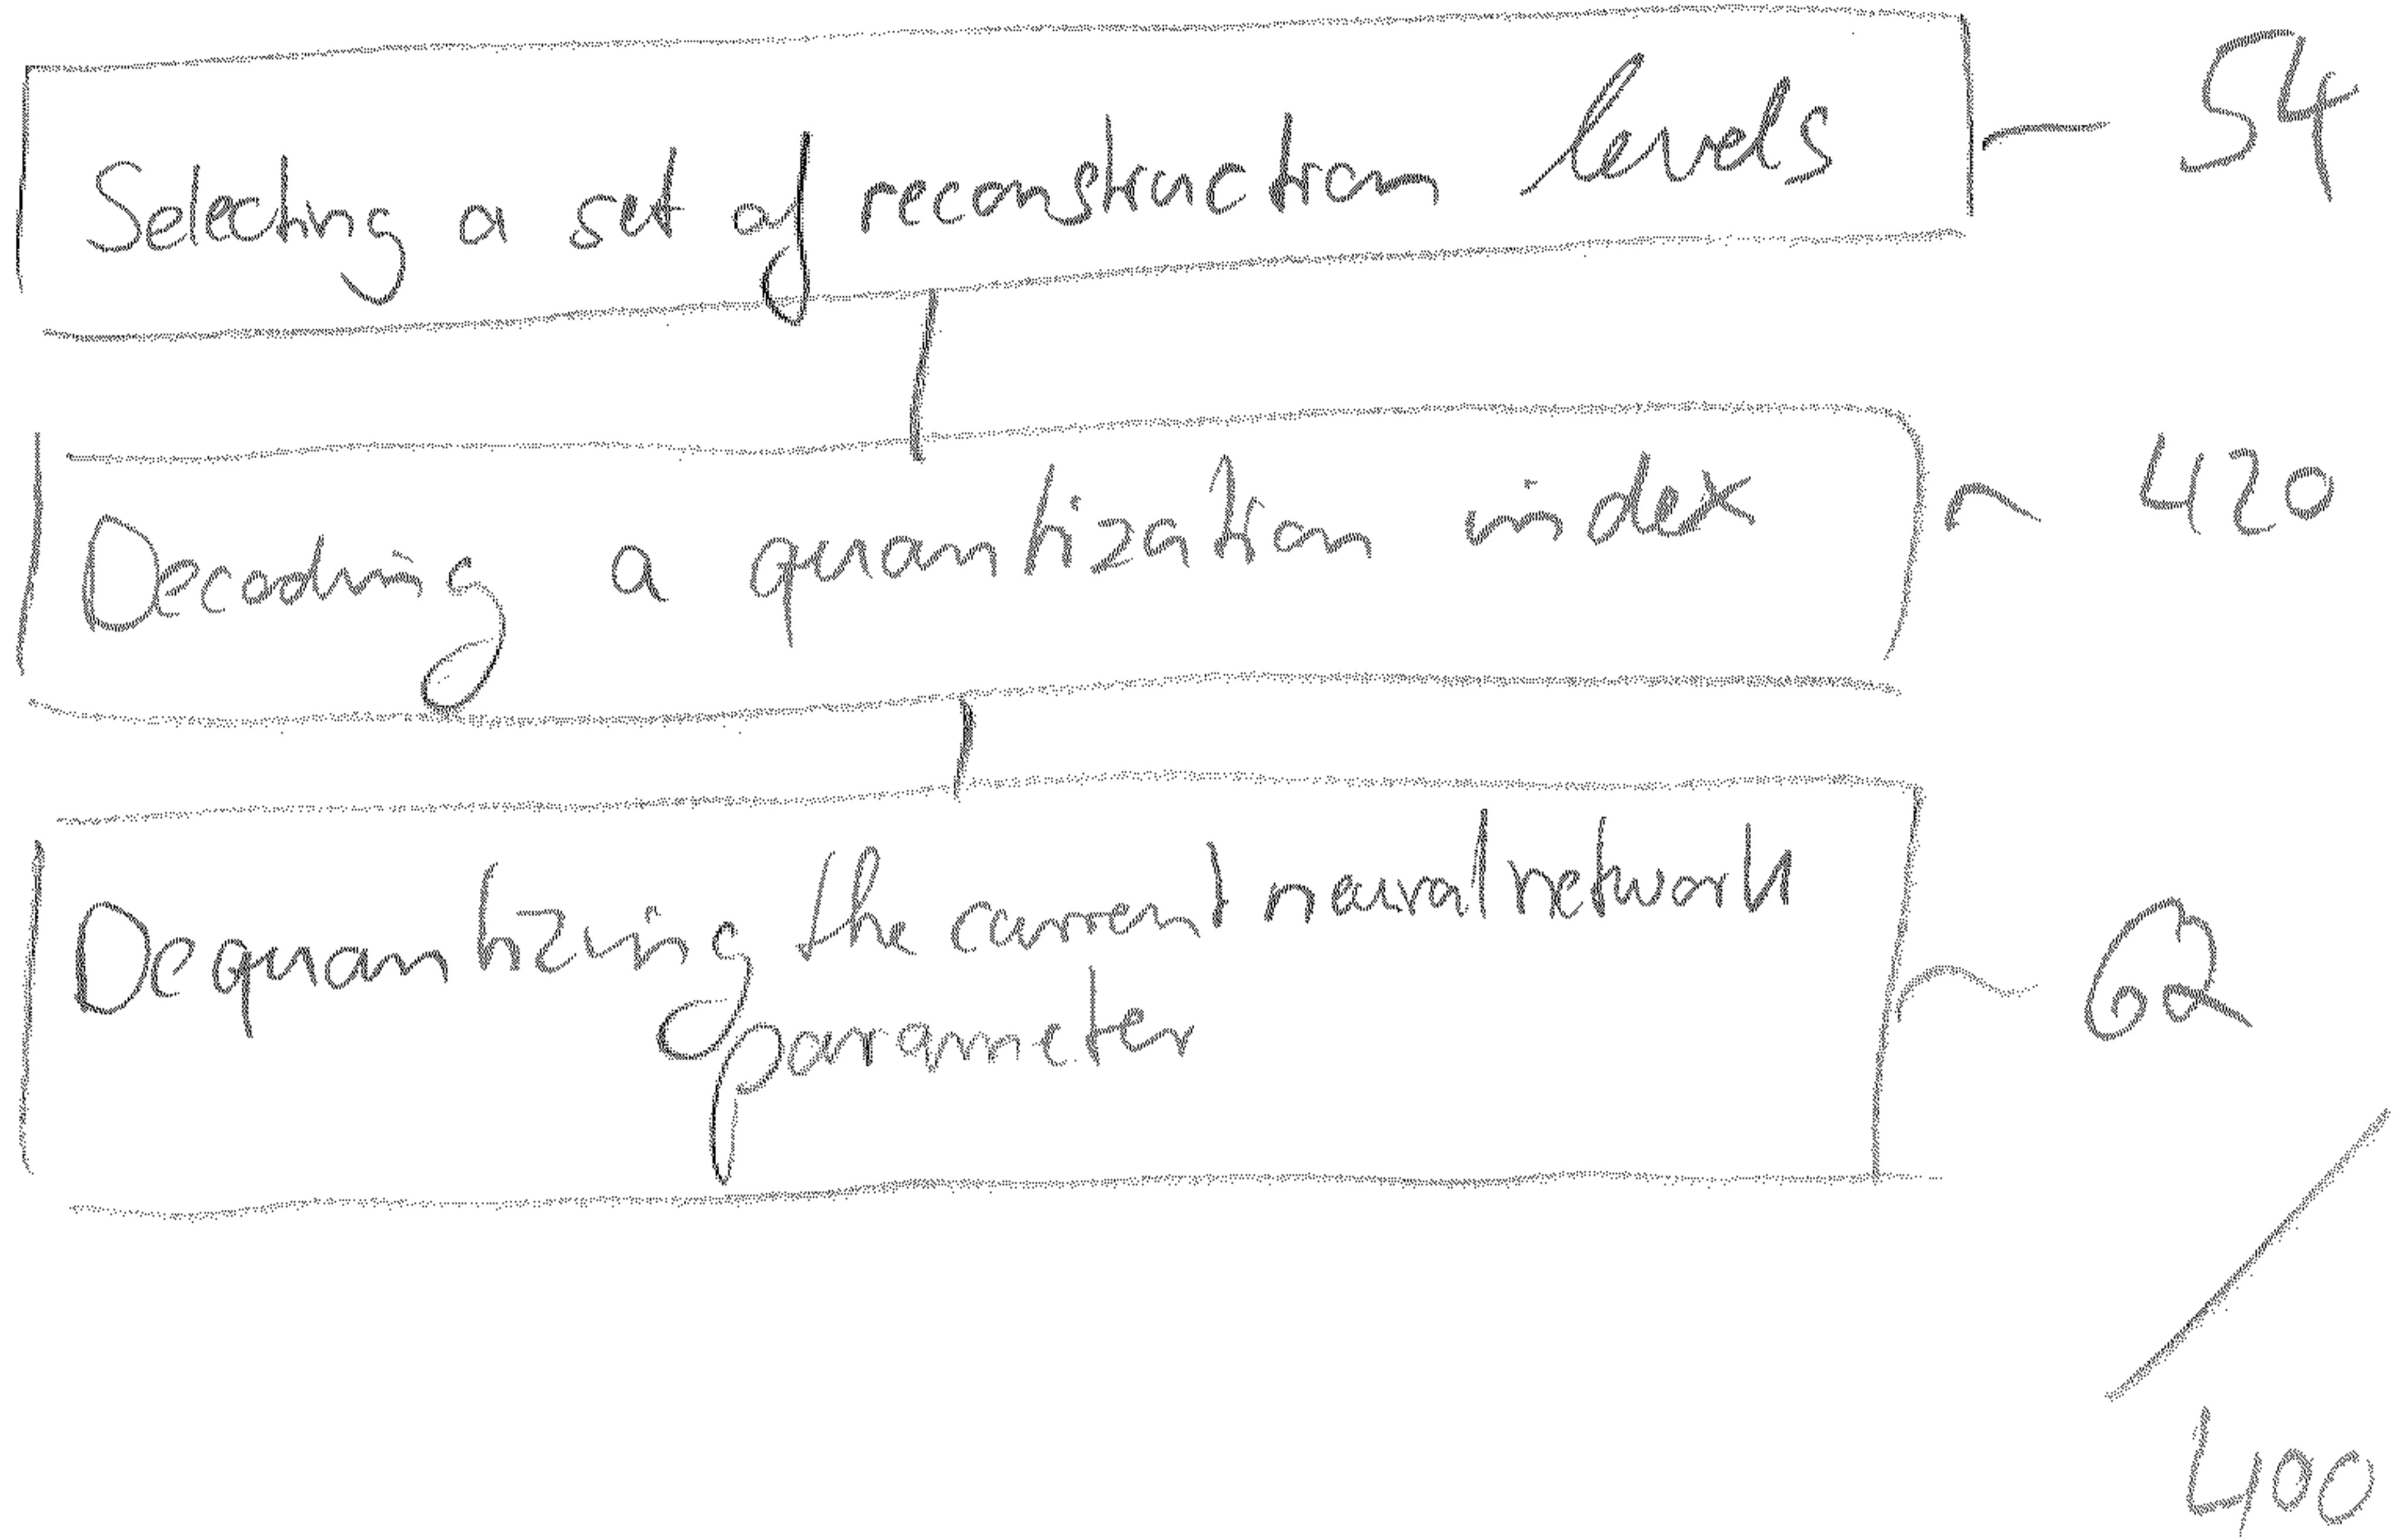 Selecting a set of reconstruction levels
54
Decoding a quantization index
420
Dequantizing the current neural network
parameter
62
400